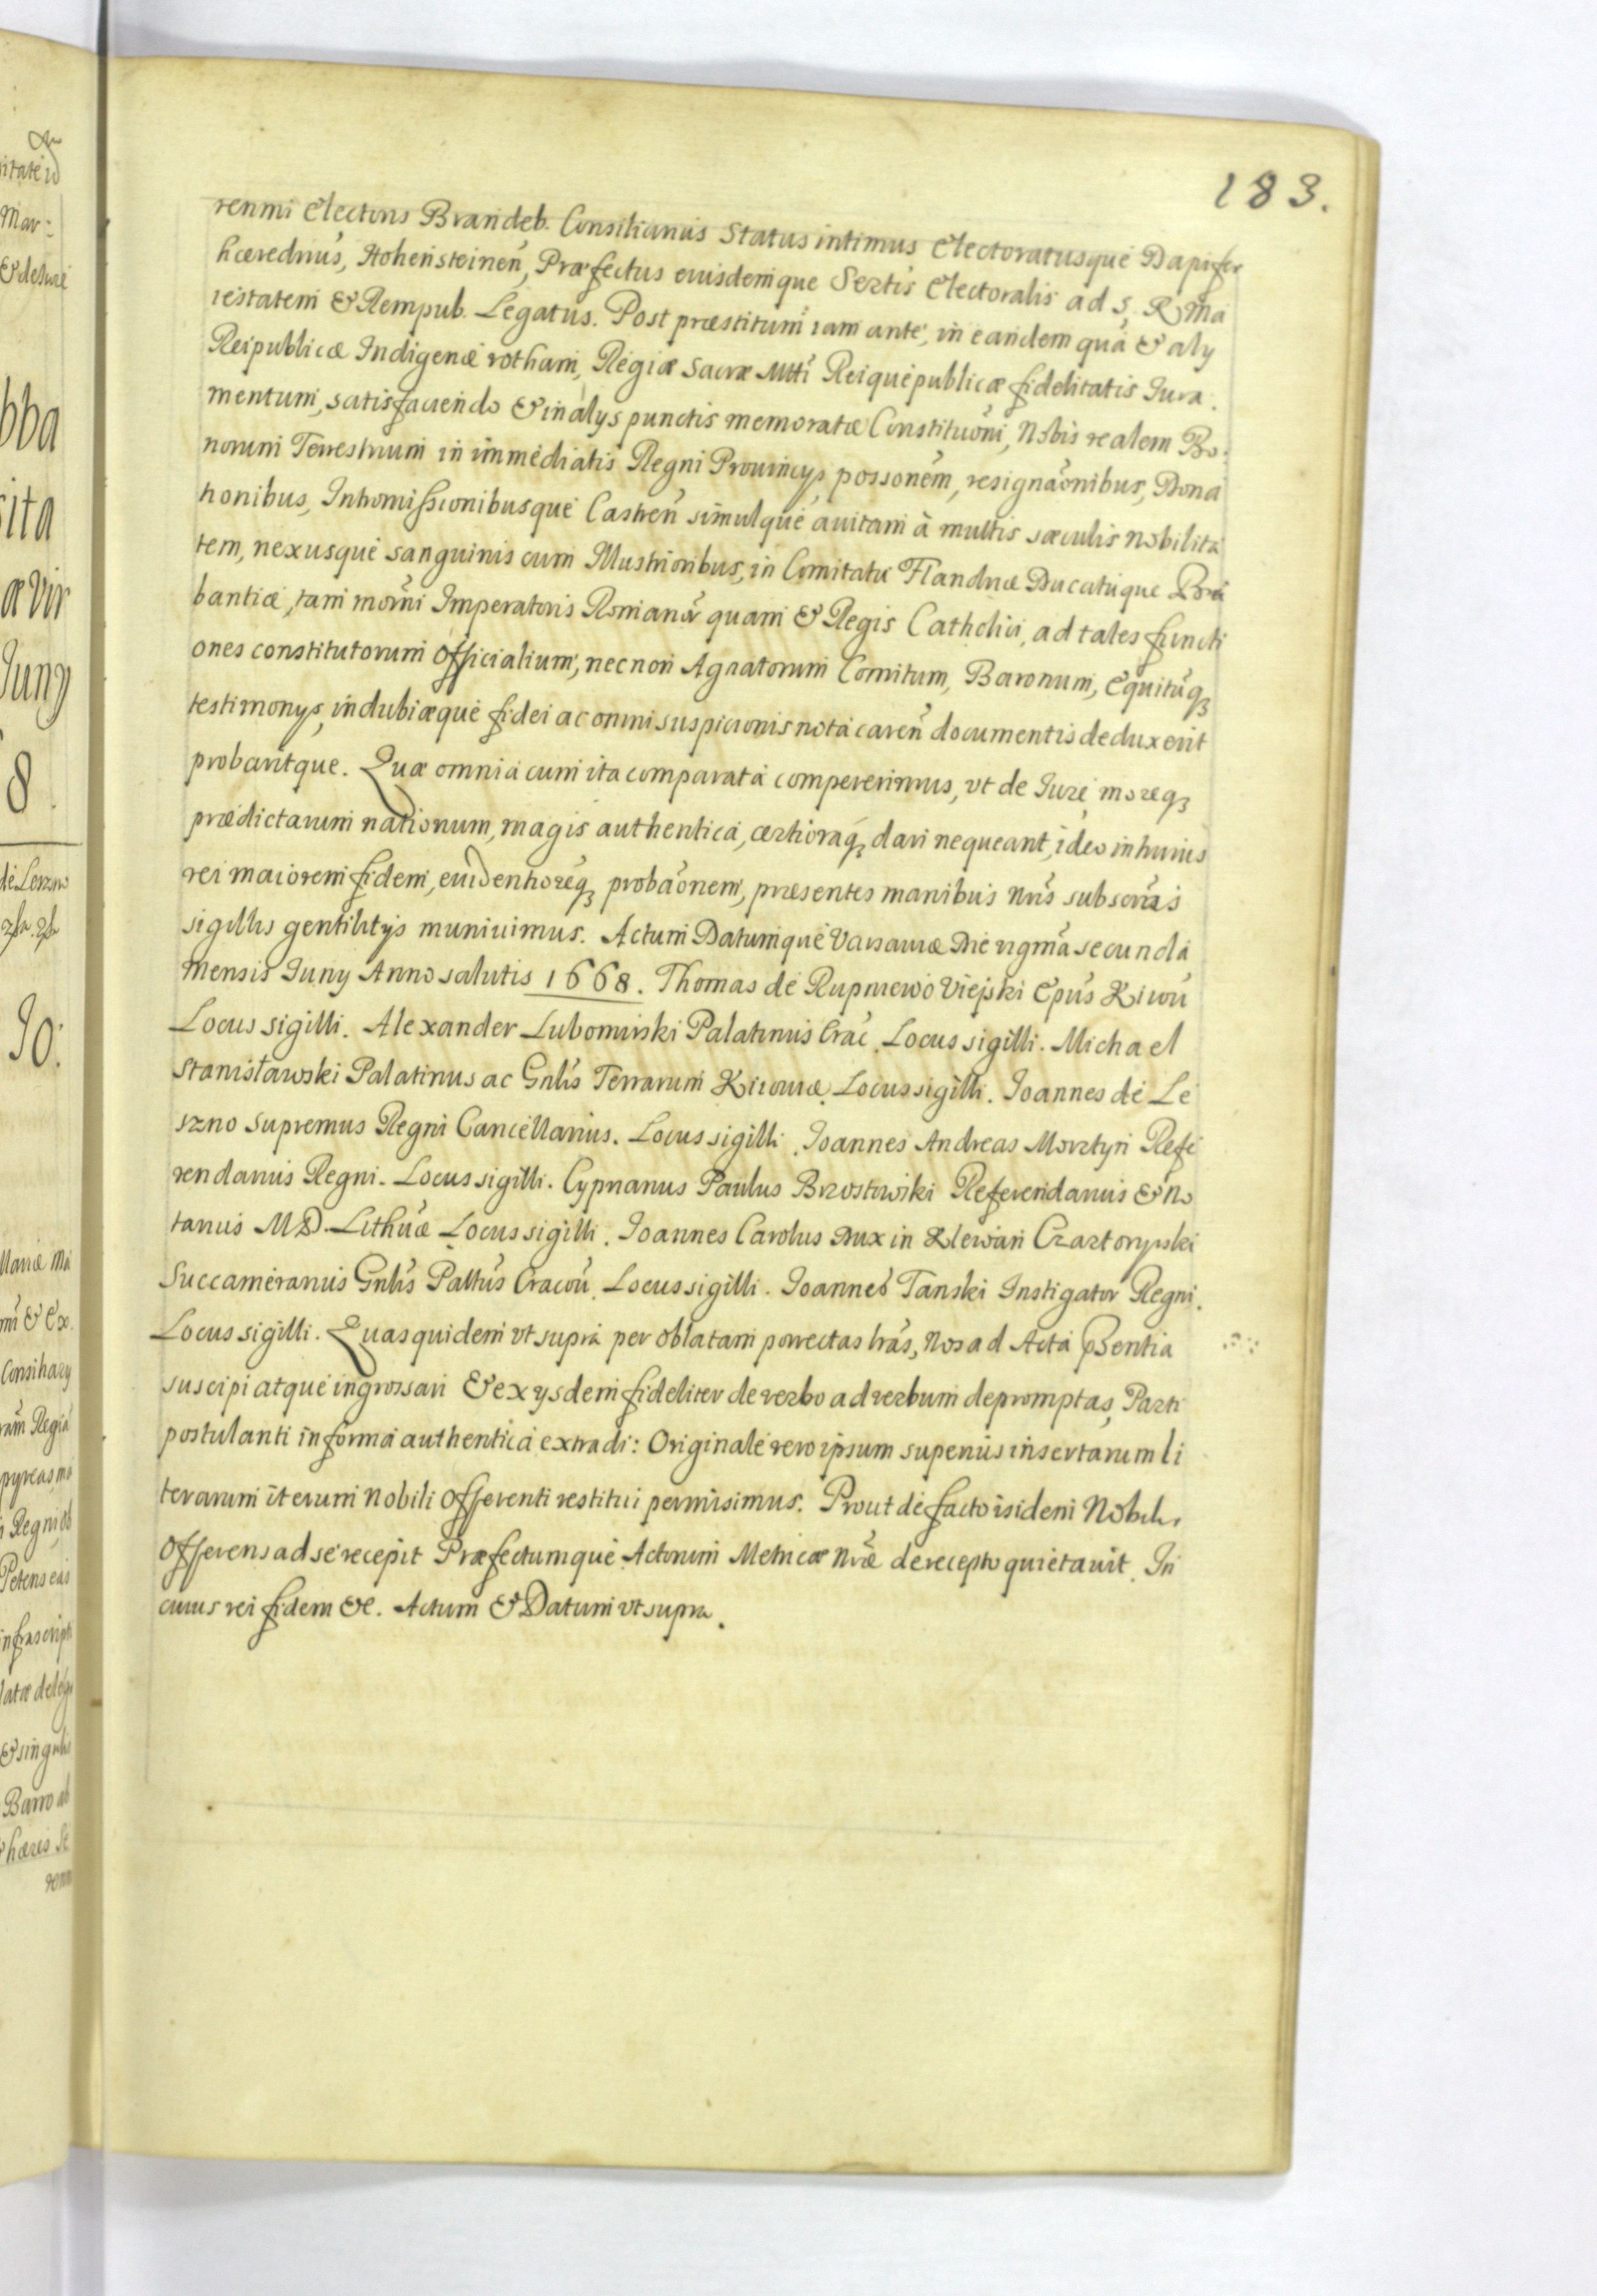 183.
renmi Electoris Brandeb. Consiliarius Status intimus Electoratusque Dapifer
hæreditrius, Hohensteineñ, Præfectus eiusdemque Sertis Electoralis ad S. R. Ma
iestatem & Rempub. Legatus. Post præstitum iam ante, in eandem qua & aly
Reipublicæ Indigenæ rotham, Regiæ Sacræ Mtti Reiquepublicæ fidelitatis Iura.
mentum, satisfaciendo & in alys punctis memoratæ Constituõni, Nobis realem Bo:
norum Terrestrium in immediatis Regni Prouincys possonem, resignãonibus, Dona
tionibus, Intromissionibusque Castreñ simulque auitam à multis sæculis nobilita
tem, nexusque sanguinis cum Illustrioribus, in Comitatu Flandriæ Ducatuque Bra
bantiæ, tam moðrni Imperatoris Romanor quam & Regis Catholici, ad tales functi
ones constitutorum Officialium, necnon Agnatorum Comitum, Baronum, Equitũq3
testimonys, indubiæque fidei ac omni suspicionis nota careñ documentis deduxerit
probaritque. Quæ omnia cum ita comparata compererimus, vt de Iure moreq3
prædictarum nationum, magis authentica, certioraq3 dari nequeant, ideo in huius
rei maiorem fidem, euidentioreq3 probãonem, præsentes manibus nris subscriptas
sigillis gentilitys muniuimus. Actum Datumque Varsauiæ Die vigmã secunda
mensis Iuny Anno salutis 1668. Thomas de Rupniewo Viejski Epus Kiiou
Locus sigilli. Alexander Lubomirski Palatinus Crac. Locus sigilli. Michael
Stanisławski Palatinus ac Gnlis Terrarum Kiiouiæ. Locus sigilli. Ioannes de Le
szno Supremus Regni Cancellarius. Locus sigilli. Ioannes Andreas Morztyn Refe
rendarius Regni. Locus sigilli. Cyprianus Paulus Brzostowski Referendarius & No
tarius M.D. Lithuæ Locus sigilli. Ioannes Carolus Dux in Klewań Czartoryski
Succamerarius Gnlis Pallus Cracou. Locus sigilli. Ioannes Tanski Instigator Regni.
Locus sigilli. Quas quidem vt supra per oblatam porrectas lras, Nos ad Acta Psentia
suscipi atque ingrossari & ex ysdem fideliter de verbo ad verbum depromptas, Parti
postulanti in forma authentica extradi: Originale vero ipsum superius insertarum li
terarum iterum Nobili Offerenti restitui permisimus. Prout de facto isidem Nobilis
Offerens ad se recepit Præfectumque Actorum Metricæ Nræ de recepto quietauit. In
cuius rei fidem &c. Actum & Datum vt supra.